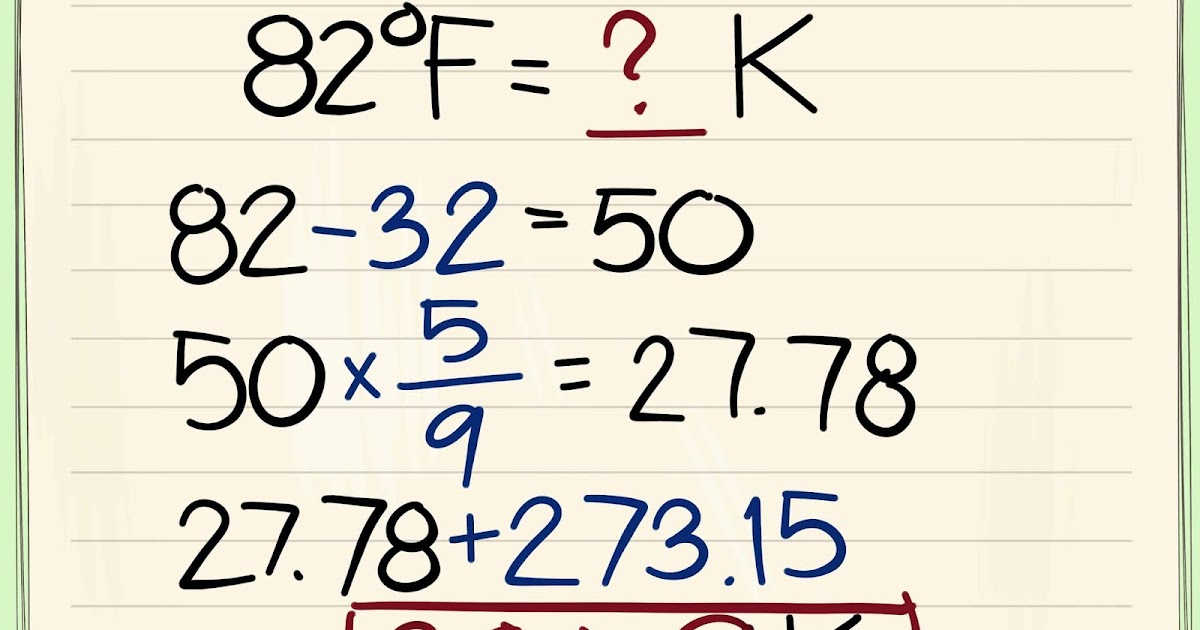 82°F = ? K
82 - 32 = 50
50 x 5/9 = 27.78
27.78 + 273.15
K